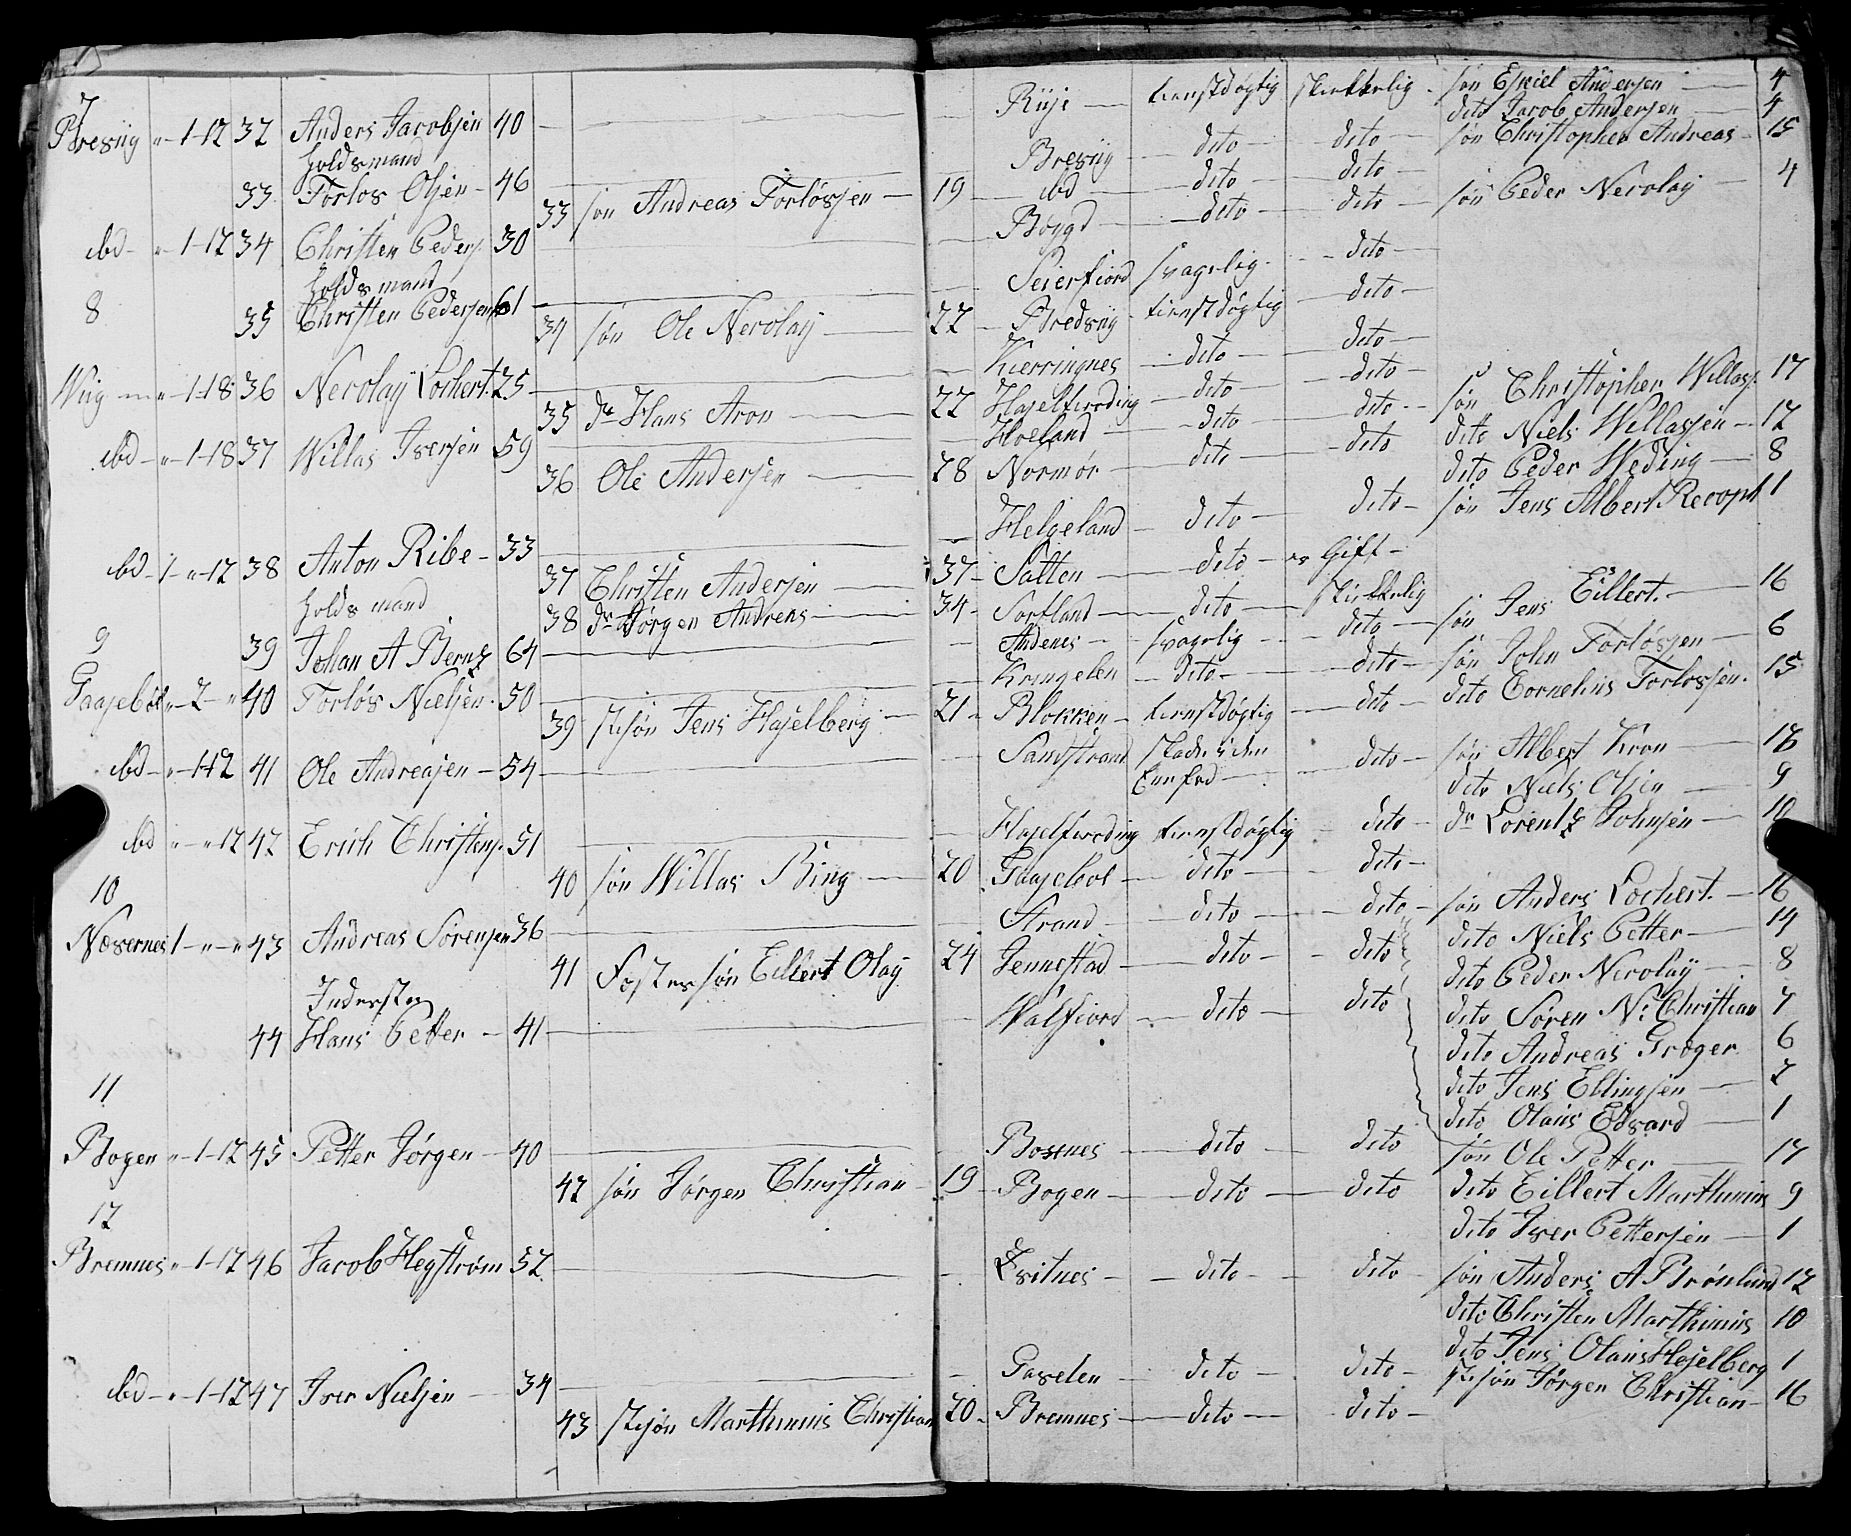 7
Bresvig „ - 1-12 32 Anders Jacobsen 40 — Riise — tienstdøgtig skikkelig - søn Esaiel Andersen — 4
dito Jacob Andersen — 4
holdsmand Bresvig — dito — dito — søn Christopher Andreas - 15
33 Torlos Olsen - 46 — ibd — dito — dito —
33 søn Andreas Torløssen — 19 Bøygd — dito — dito — søn Peder Nerolay — 4
ibd - „ 1-12 34 Christen Peders. 30 — Seierfiord svagelig - dito —
holdsmand
8 35 Christen Pedersen 61 — Bredsvig - tienstdøgtig — dito —
34 søn Ole Nerolay — 22 — Kierringnes — dito — dito —
Wiig — „ 1-18 36 Nerolay Lochert. 25 — Hasselfierding — dito — dito — søn Christopher Willass. 17
35 do Hans Aron — 22 Hoeland — dito — dito — dito Niels Willassen — 12
ibd — „ 1-18 37 Willas Iversen 59 — dito Peder Weding — 8
36 Ole Andersen — 28 Normør — dito — dito
Helgeland — dito — dito — søn Jens Albert Recopt 1
ibd - 1 - „ - 12 38 Anton Ribe — 33 —
37 Christen Andersen — 37 - Salten — dito — Gift —
holdsmand 38 do Jørgen Andreas — 34 - Sortland — dito — skikkelig søn Jens Eillert. — 16
9 39 Johan A Berntz 64 — Andenes — svagelig — dito — søn John Torløssen — 6
Gaasebøl „ - 2 - „ 40 Torløs Nielsen. 50 — Kringelen — dito — dito — dito Cornelius Torlossen. 15
39 stisøn Jens Hasselberg — 21 - Blokken — tienstdøgtig — dito —
ibd — „ 1-12 41 Ole Andreasen — 54 — Sandstrand skade i den — dito — søn Albert Kron — 16
dito Niels Olsen — 9
ibd „ „ 12 42 Erich Christens. 51 — Hasselfierding tienstdøgtig — dito — do Lorentz Johnsen — 10
10 40 søn Willas Bing — 20 Gaasebøl — dito — dito —
Næsernes 1 - „ - „ 43 Andreas Sørensen 36 — Strand — dito — dito — søn Anders Lochert. — 16
dito Niels Petter — 14
41 Fostersøn Eillert Olay 24 Jennestad — dito — dito — dito Peder Nerolay — 8
Inderster
44 Hans Petter — 41 — Walfiord — dito — dito dito Søren N: Christian 7
dito Andreas Grøger 6
11 dito Jens Ellingsen — 2
dito Olaus Edvard — 1
Bogen „ 1-12 45 Petter Jørgen — 40 — Bosenes — dito — dito søn Ole Petter — 17
42 søn Jørgen Christian — 19 - Bogen — dito — dito dito Eillert Marthinus 9
12 dito Iver Pettersen — 1
Bremnes „ 1-12 46 Jacob Hegstrøm 52 — Kvitnes — dito — dito — søn Anders A Brønlund 12
dito Christen Marthinus 10
dito Jens Olaus Hasselberg 1
ibd — „ 1-12 47 Iver Nielsen — 34 — Gavelen — dito — dito — stisøn Jørgen Christian — 16
43 stisøn Marthinus Christian 20 - Bremnes — dito — dito —